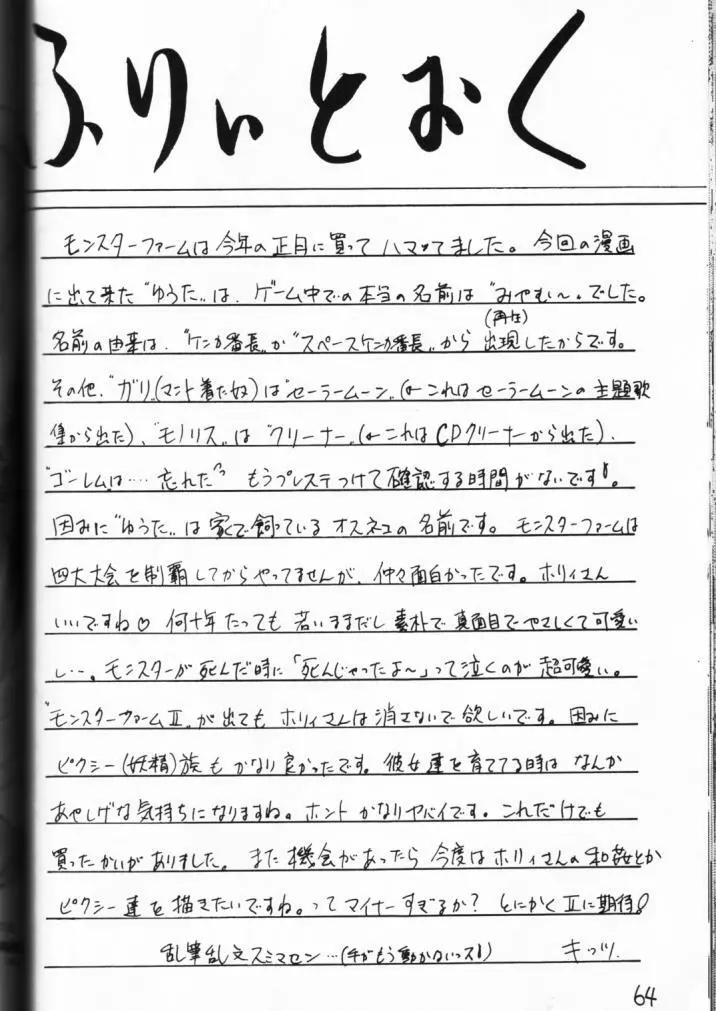 ふりぃとおく
モンスターファームは今年の正月に買ってハマってました。今回の漫画
に出て来た"ゆうた"は、ゲーム中での本当の名前は"みやむ〜"でした。
名前の由来は、"ケンカ番長"が"スペースケンカ番長"から出現(再生)したからです。
その他、"ガリ"(マント着た奴)は"セーラームーン"(←これはセーラームーンの主題歌
集から出た)、"モノリス"は"クリーナー"(←これはCDクリーナーから出た)、
"ゴーレムは…忘れた" もうプレステつけて確認する時間がないです!。
因みに"ゆうた"は家で飼っているオスネコの名前です。モンスターファームは
四大大会を制覇してからやってませんが、仲々面白かったです。ホリィさん
いいですね♡ 何十年たっても若いままだし素朴で真面目でやさしくて可愛い
し…。モンスターが死んだ時に「死んじゃったよ〜」って泣くのが超可愛い。
"モンスターファームⅡ"が出てもホリィさんは消さないで欲しいです。因みに
ピクシー(妖精)族もかなり良かったです。彼女達を育ててる時はなんか
あやしげな気持ちになりますね。ホントかなりヤバイです。これだけでも
買ったかいがありました。また機会があったら今度はホリィさんの和姦とか
ピクシー達を描きたいですね。ってマイナーすぎるか?とにかくⅡに期待!
乱筆乱文スミマセン…(手がもう動かないっス!) キッツ.
64